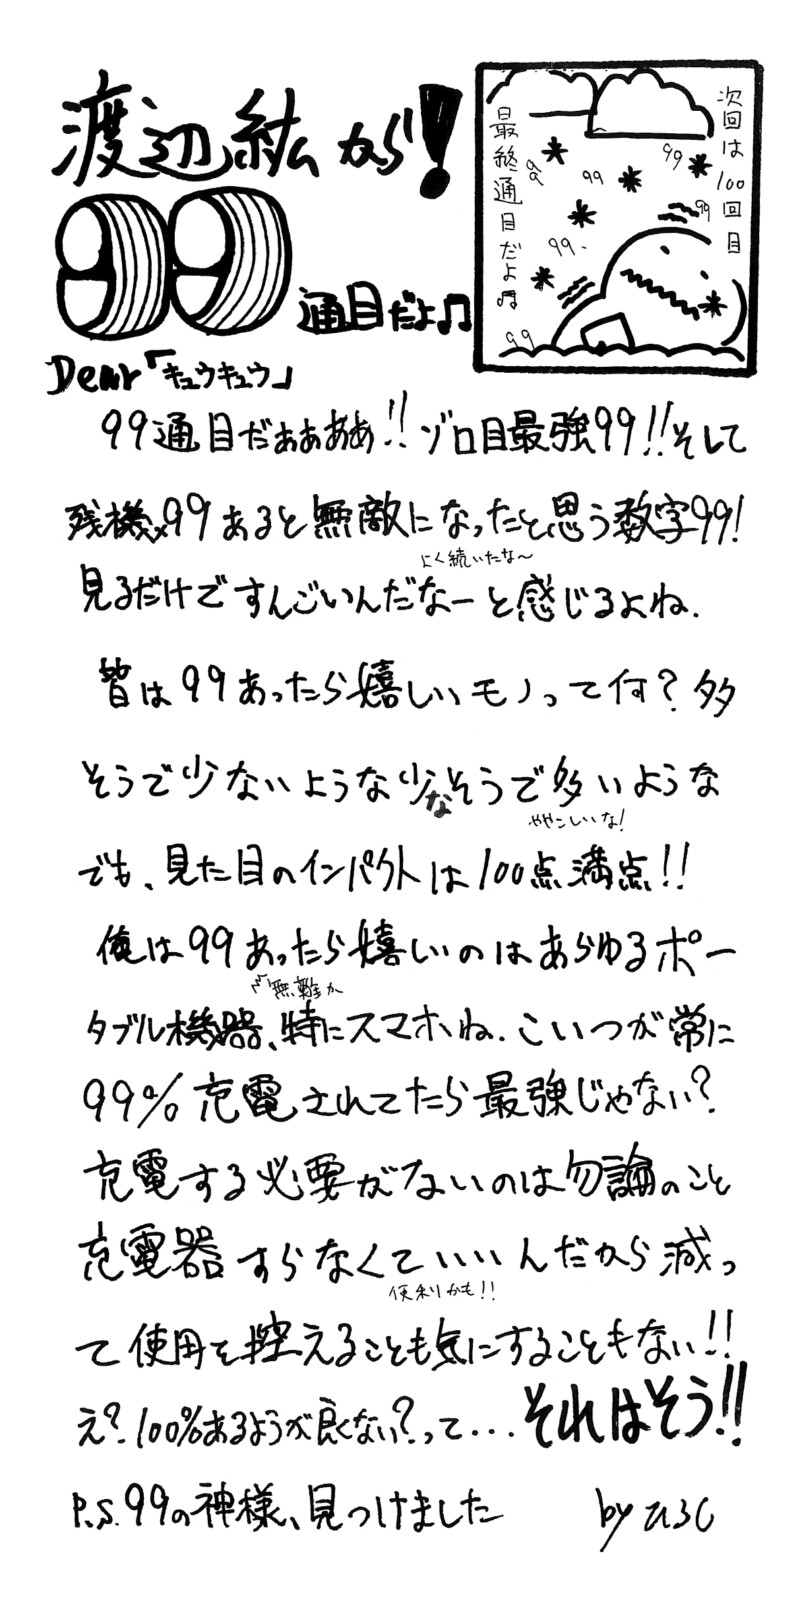 渡辺紘から!
99通目だよ♫
次回は100回目
最終通目だよ♫
99
99
99
99
99
99
Dear「キュウキュウ」
99通目だぁぁああ!!ゾロ目最強99!!そして
残機×99あると無敵になったと思う数字99!
よく続いたな〜
見るだけですんごいんだなーと感じるよね.
皆は99あったら嬉しいモノって何?多
そうで少ないような少なそうで多いような
ややこしいな!
でも、見た目のインパクトは100点満点!!
俺は99あったら嬉しいのはあらゆるポー
で無難か
タブル機器、特にスマホね.こいつが常に
99%充電されてたら最強じゃない?
充電する必要がないのは勿論のこと
充電器すらなくていいんだから減っ
便利かも!!
て使用を控えることも気にすることもない!!
え?100%あるようが良くない?って...それはそう!!
P.S.99の神様、見つけました by ひろし